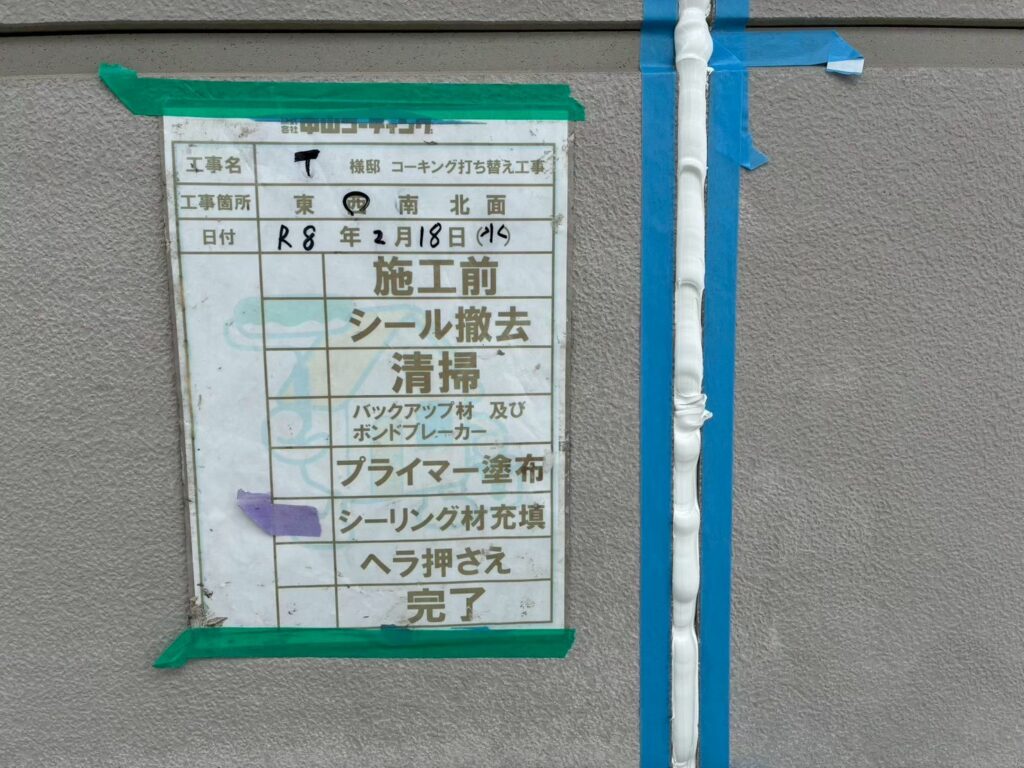 株式会社中山コーティング
工事名 T 様邸 コーキング打ち替え工事
工事箇所 東 西 南 北 面
日付 R8年2月18日(水)
施工前
シール撤去
清掃
バックアップ材 及び
ボンドブレーカー
プライマー塗布
シーリング材充填
ヘラ押さえ
完了